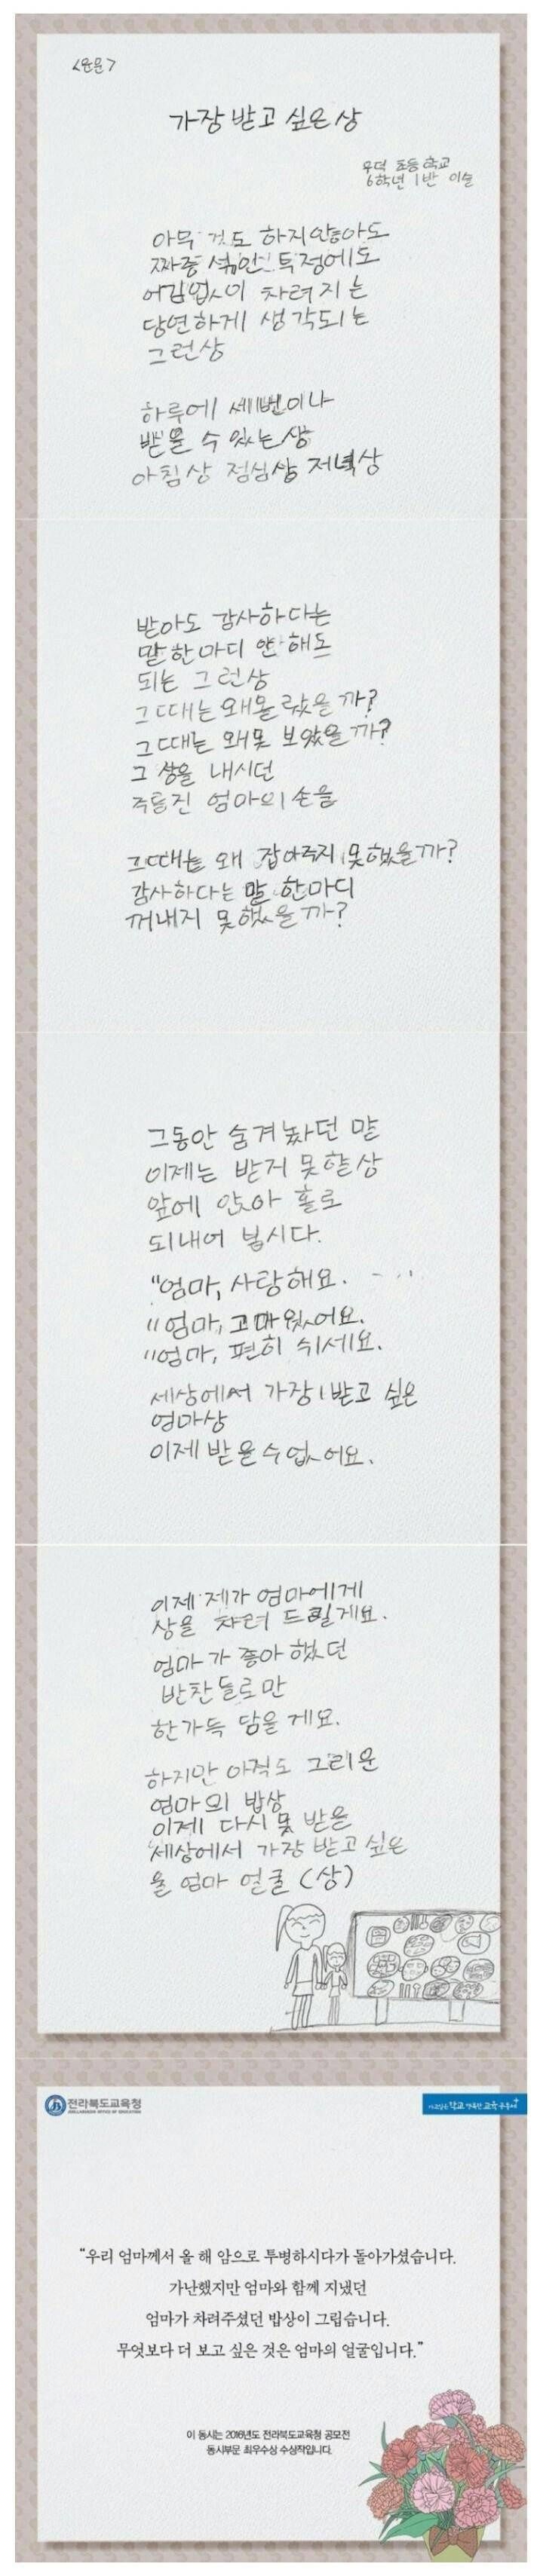 <운문>
가장 받고 싶은 상
우덕 초등학교
6학년 1반 이슬
아무 것도 하지않아도
짜증 섞인 투정에도
어김없이 차려지는
당연하게 생각되는
그런상
하루에 세번이나
받을 수 있는상
아침상 점심상 저녁상
받아도 감사하다는
말 한마디 안 해도
되는 그런상
그때는 왜몰랐을까?
그때는 왜못 보았을까?
그 상을 내시던
주름진 엄마의 손을
그때는 왜 잡아주지 못했을까?
감사하다는 말 한마디
꺼내지 못했을까?
그동안 숨겨놨던 말
이제는 받지 못할상
앞에 앉아 홀로
되내어 봅시다.
"엄마, 사랑해요. - ...
"엄마, 고마웠어요.
"엄마, 편히 쉬세요.
세상에서 가장 받고 싶은
엄마상
이제 받을수없어요.
이제 제가 엄마에게
상을 차려 드릴게요.
엄마가 좋아했던
반찬들로만
한가득 담을게요.
하지만 아직도 그리운
엄마의 밥상
이제 다시 못 받을
세상에서 가장 받고 싶은
울 엄마 얼굴 (상)
전라북도교육청
JEOLLABUKDO OFFICE OF EDUCATION
가고싶은 학교 행복한 교육공동체
"우리 엄마께서 올 해 암으로 투병하시다가 돌아가셨습니다.
가난했지만 엄마와 함께 지냈던
엄마가 차려주셨던 밥상이 그립습니다.
무엇보다 더 보고 싶은 것은 엄마의 얼굴입니다."
이 동시는 2016년도 전라북도교육청 공모전
동시부문 최우수상 수상작입니다.